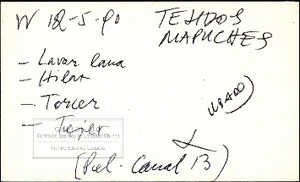 W 12-5-90
TEJIDOS
MAPUCHES
- Lavar lana
- Hilar
- Torcer
- Tejer
(USADO)
(Pel - Canal 13)